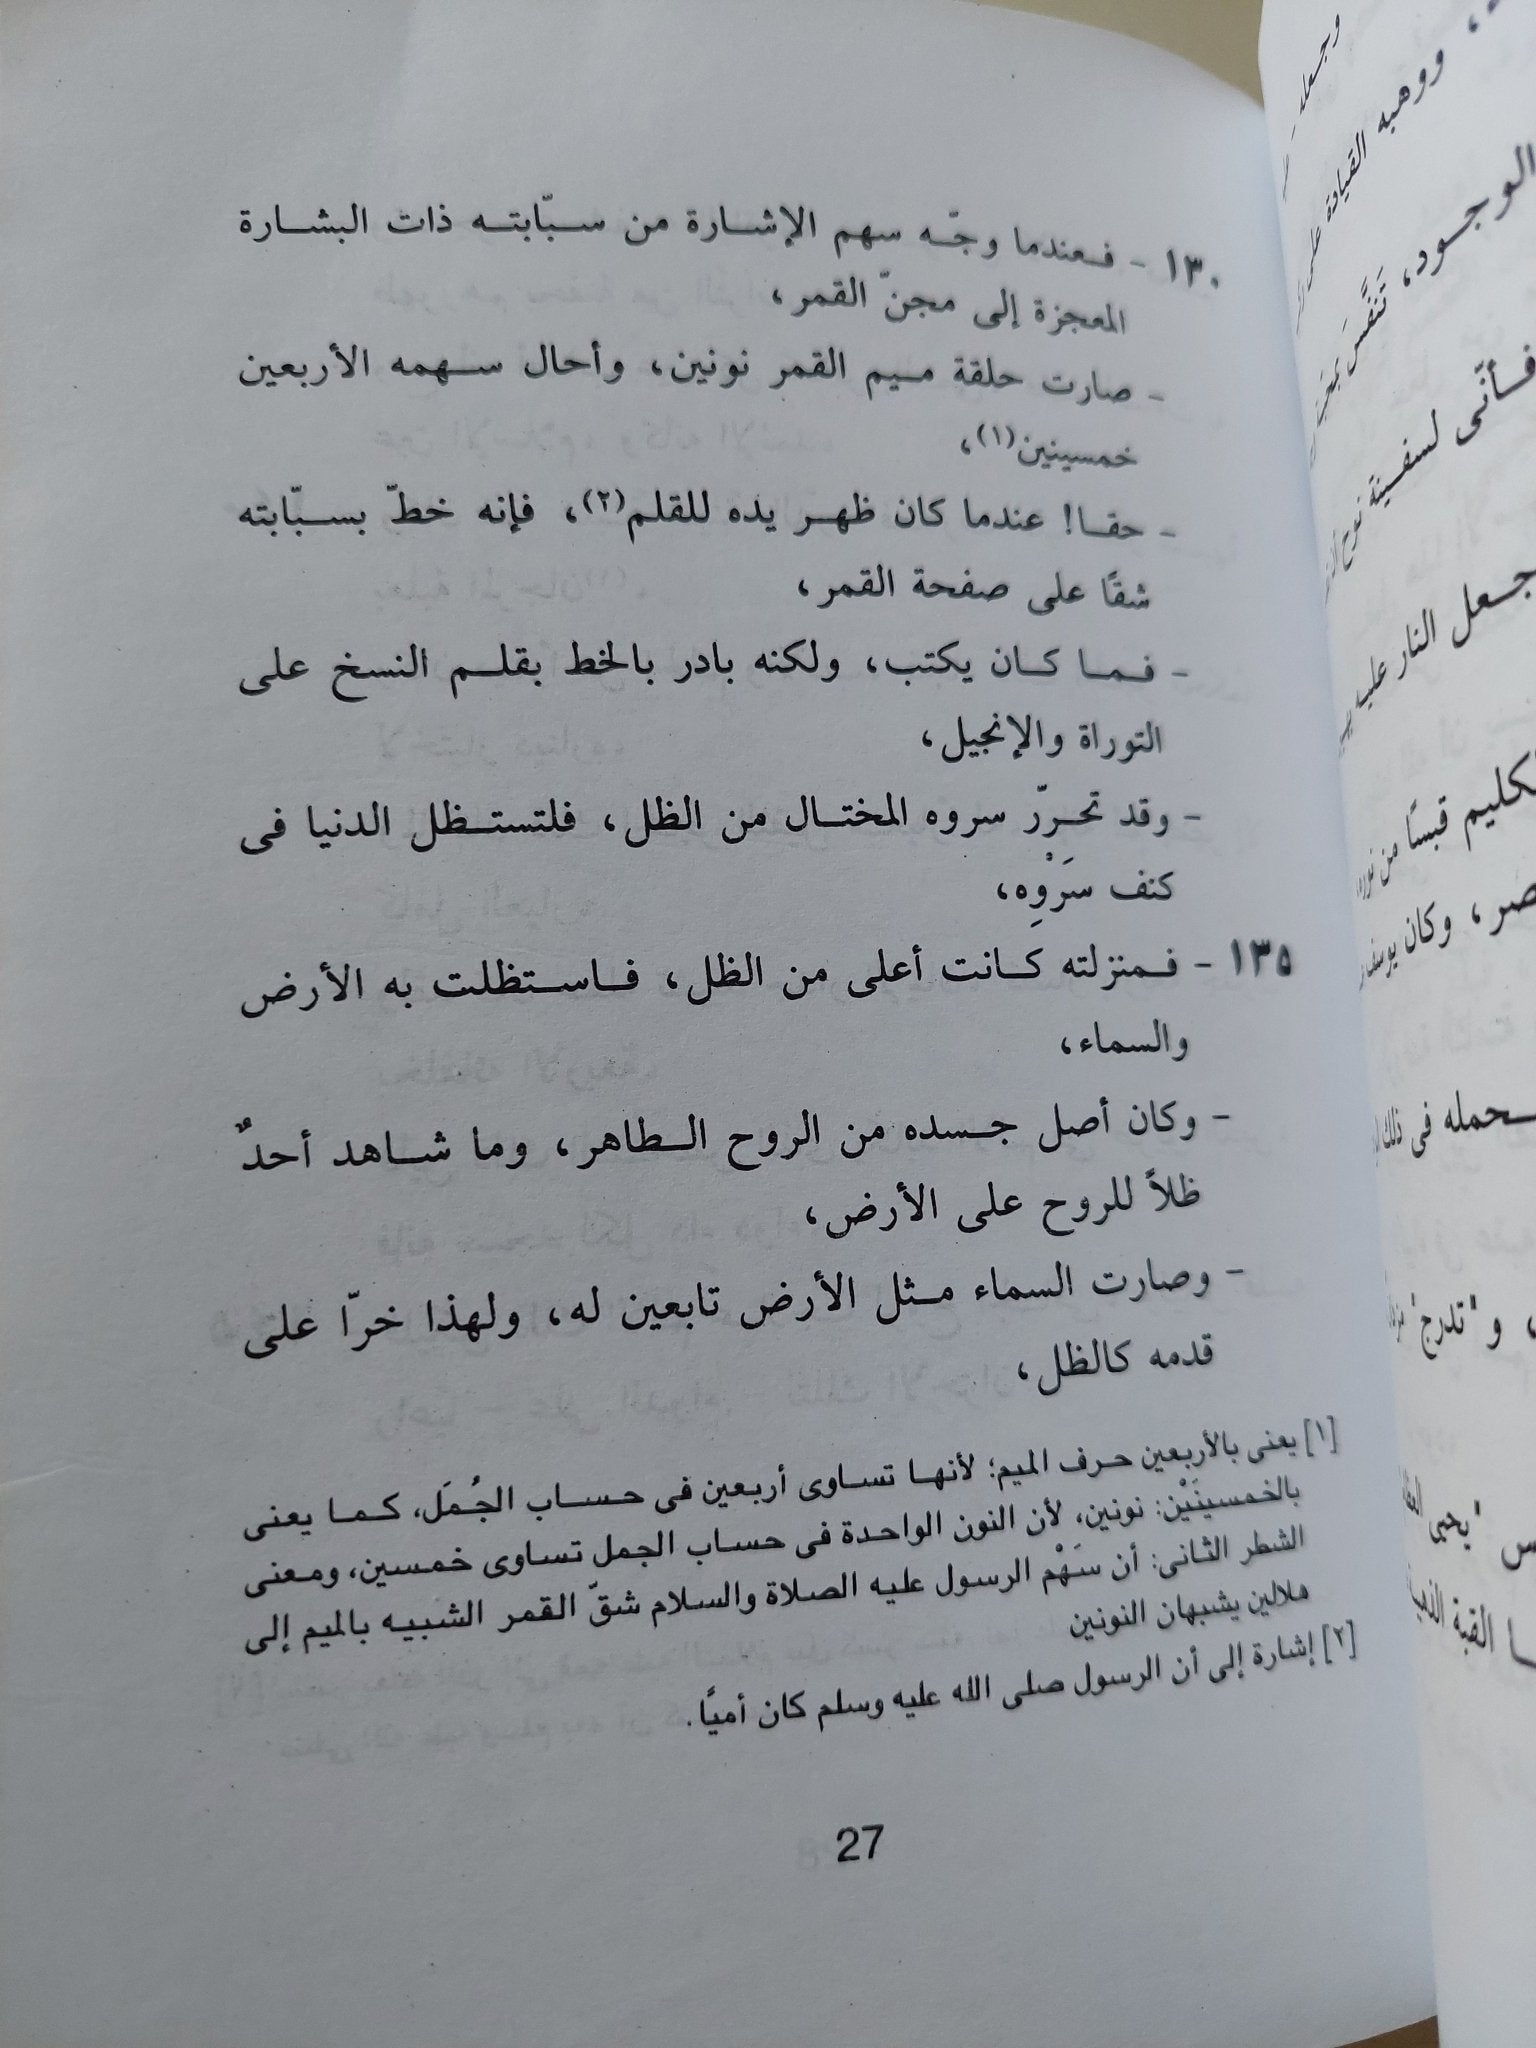 ١٣٠ - فعندما وجّه سهم الإشارة من سبّابته ذات البشارة
المعجزة إلى مجنّ القمر،
- صارت حلقة ميم القمر نونين، وأحال سهمه الأربعين
خمسينين(١)،
- حقا! عندما كان ظهر يده للقلم(٢)، فإنه خطّ بسبّابته
شقًا على صفحة القمر،
- فما كان يكتب، ولكنه بادر بالخط بقلم النسخ على
التوراة والإنجيل،
- وقد تحرّر سروه المختال من الظل، فلتستظل الدنيا فى
كنف سَرْوِه،
١٣٥ - فمنزلته كانت أعلى من الظل، فاستظلت به الأرض
والسماء،
- وكان أصل جسده من الروح الطاهر، وما شاهد أحدٌ
ظلاً للروح على الأرض،
- وصارت السماء مثل الأرض تابعين له، ولهذا خرّا على
قدمه كالظل،
[١] يعنى بالأربعين حرف الميم؛ لأنها تساوى أربعين فى حساب الجُمَل، كما يعنى
بالخمسينَيْن: نونين، لأن النون الواحدة فى حساب الجمل تساوى خمسين، ومعنى
الشطر الثانى: أن سَهْم الرسول عليه الصلاة والسلام شقّ القمر الشبيه بالميم إلى
هلالين يشبهان النونين
[٢] إشارة إلى أن الرسول صلى الله عليه وسلم كان أميًا.
27
وجعله
ووهبه القيادة على
الوجود، تَنفَّسَ
فأنّى لسفينة نوح
جعل النار عليه
قبسًا من نوره
وكان يوسف
حمله فى ذلك
و"تدرج"
"يحيى
القبة